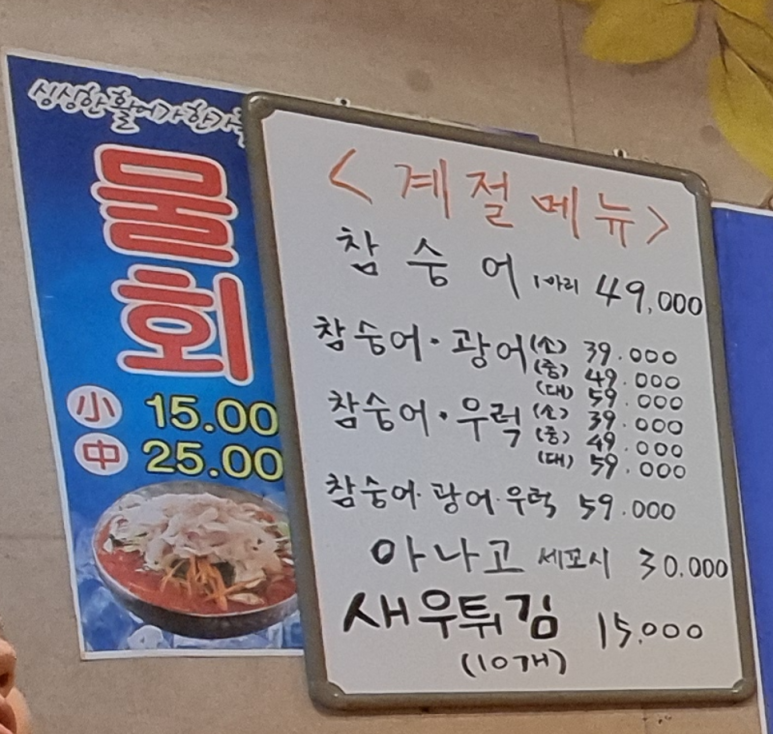 싱싱한 활어가 한가득
물회
小 15.00
中 25.00
<계절메뉴>
참숭어 1마리 49,000
참숭어·광어 (소) 39.000
(중) 49.000
(대) 59.000
참숭어·우럭 (소) 39.000
(중) 49.000
(대) 59.000
참숭어·광어·우럭 59.000
아나고 세꼬시 30,000
새우튀김 15,000
(10개)